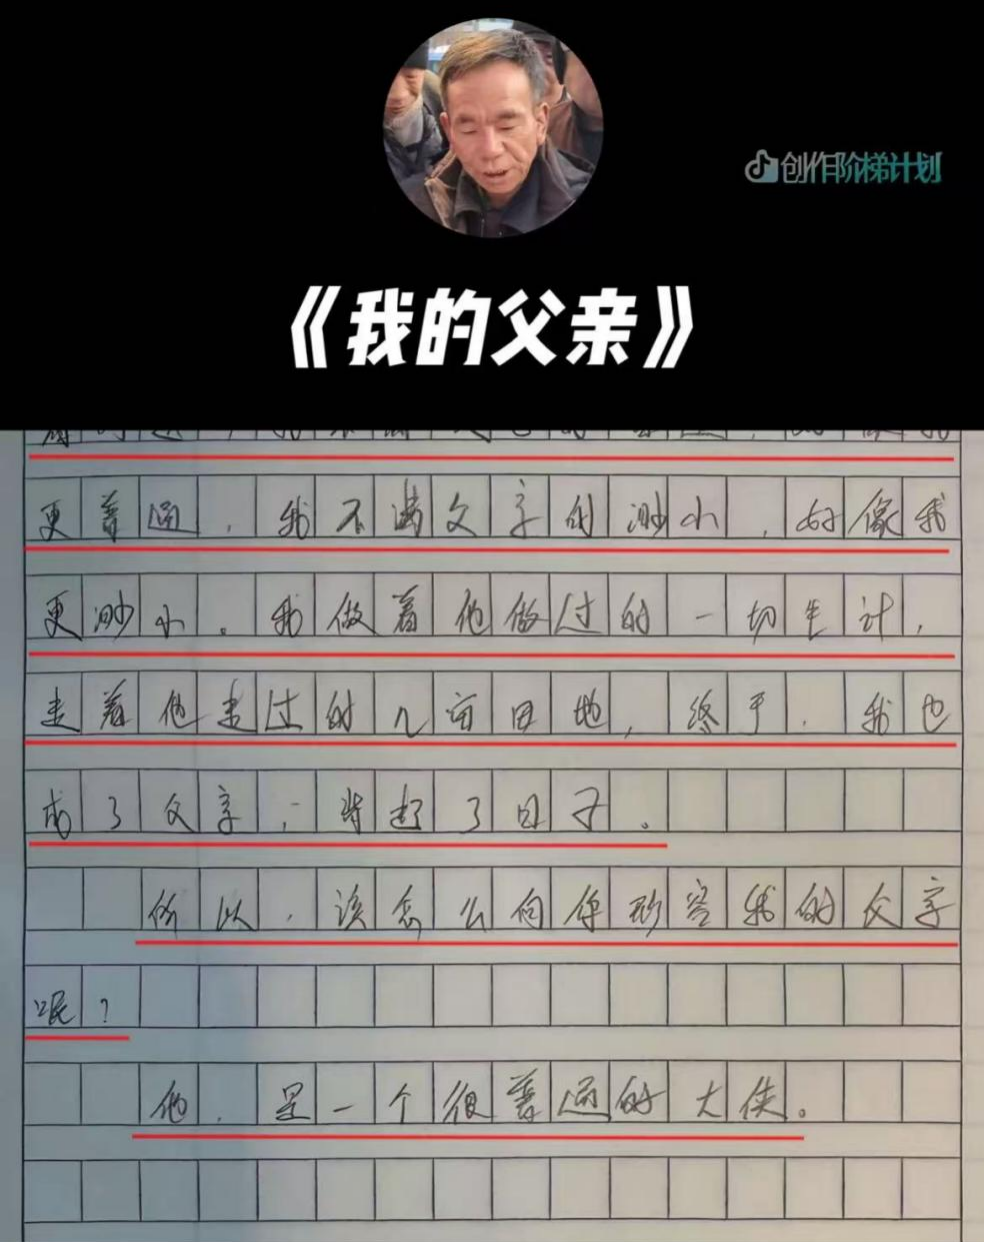 创作阶梯计划
《我的父亲》
更普通,我不满文字的渺小,好像我
更渺小。我做着他做过的一切生计,
走着他走过的几亩田地,终于,我也
成了文字;背起了日子。
所以,该怎么向你形容我的文字
呢?
他,是一个很普通的大侠。